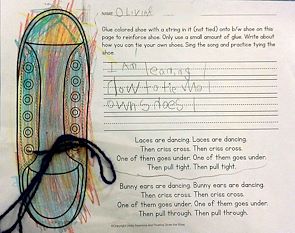 NAME Olivia
Glue colored shoe with a string in it (not tied) onto b/w shoe on this
page to reinforce shoe. Only use a small amount of glue. Write about
how you can tie your own shoes. Sing the song and practice tying the
shoe.
I Am leaning
How to tie
own shoes
Laces are dancing. Laces are dancing.
Then criss cross. Then criss cross.
One of them goes under. One of them goes under.
Then pull tight. Then pull tight.
Bunny ears are dancing. Bunny ears are dancing.
Then criss cross. Then criss cross.
One of them goes under. One of them goes under.
Then pull through. Then pull through.